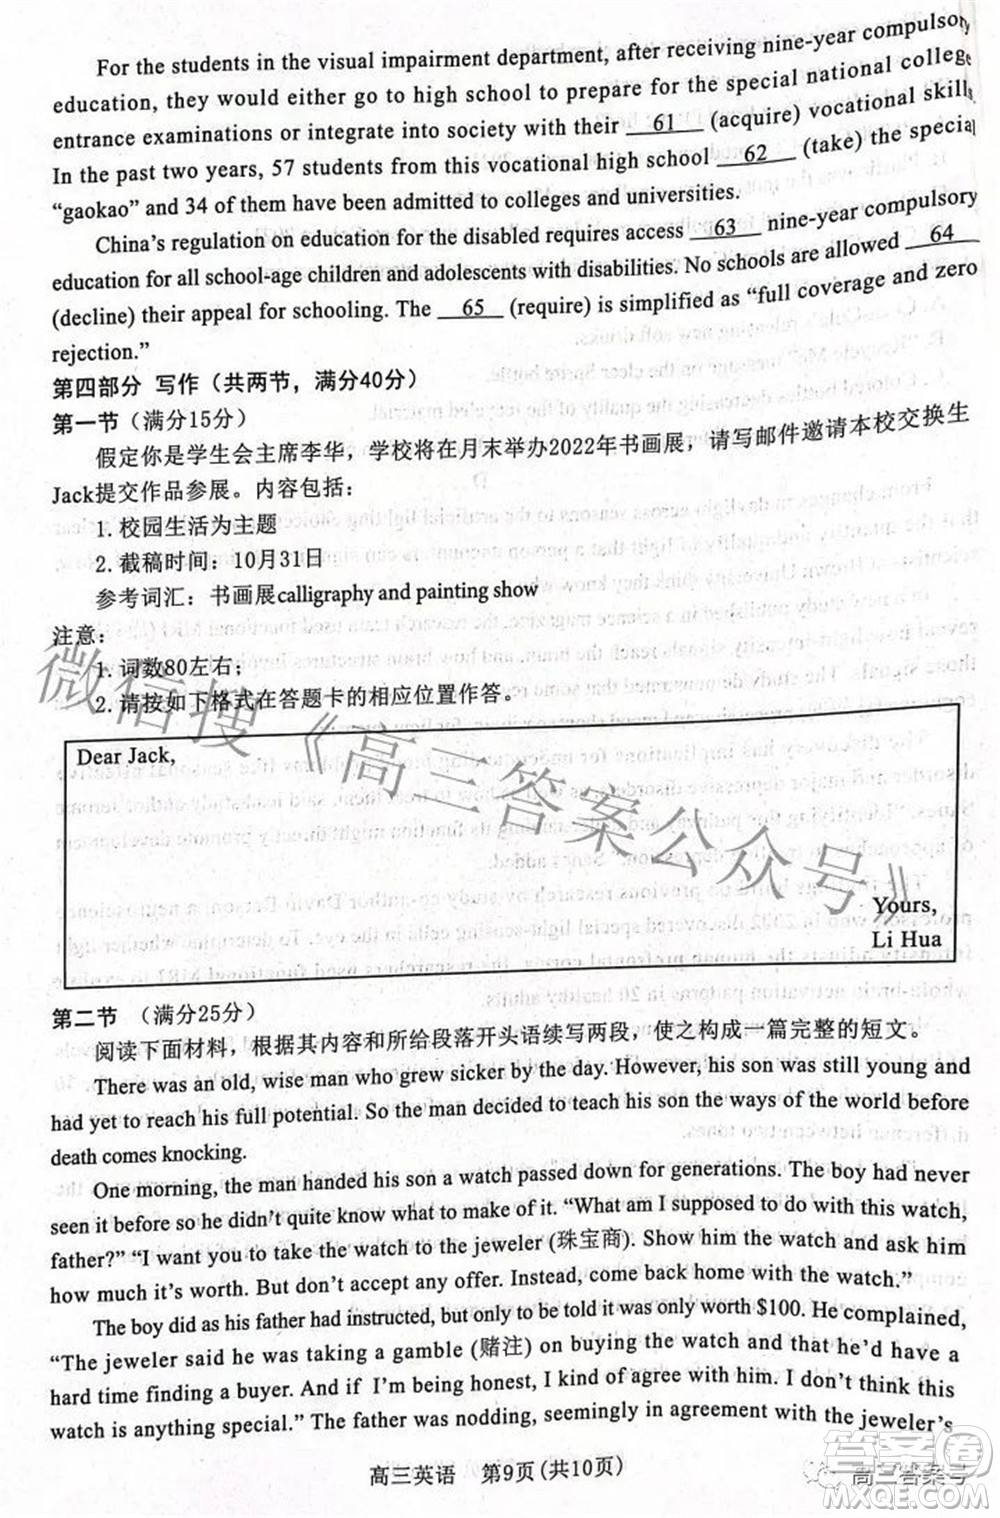 For the students in the visual impairment department, after receiving nine-year compulsory
education, they would either go to high school to prepare for the special national college
entrance examinations or integrate into society with their 61 (acquire) vocational skills.
In the past two years, 57 students from this vocational high school 62 (take) the special
“gaokao” and 34 of them have been admitted to colleges and universities.
China's regulation on education for the disabled requires access 63 nine-year compulsory
education for all school-age children and adolescents with disabilities. No schools are allowed 64
(decline) their appeal for schooling. The 65 (require) is simplified as “full coverage and zero
rejection.”
第四部分 写作（共两节，满分40分）
第一节（满分15分）
假定你是学生会主席李华，学校将在月末举办2022年书画展，请写邮件邀请本校交换生
Jack提交作品参展。内容包括：
1. 校园生活为主题
2. 截稿时间：10月31日
参考词汇：书画展calligraphy and painting show
注意：
1. 词数80左右；
2. 请按如下格式在答题卡的相应位置作答。
Dear Jack,
Yours,
Li Hua
微信搜《高三答案公众号》
第二节 （满分25分）
阅读下面材料，根据其内容和所给段落开头语续写两段，使之构成一篇完整的短文。
There was an old, wise man who grew sicker by the day. However, his son was still young and
had yet to reach his full potential. So the man decided to teach his son the ways of the world before
death comes knocking.
One morning, the man handed his son a watch passed down for generations. The boy had never
seen it before so he didn't quite know what to make of it. “What am I supposed to do with this watch,
father?” “I want you to take the watch to the jeweler (珠宝商). Show him the watch and ask him
how much it's worth. But don't accept any offer. Instead, come back home with the watch.”
The boy did as his father had instructed, but only to be told it was only worth $100. He complained,
“The jeweler said he was taking a gamble (赌注) on buying the watch and that he'd have a
hard time finding a buyer. And if I'm being honest, I kind of agree with him. I don't think this
watch is anything special.” The father was nodding, seemingly in agreement with the jeweler's
高三英语 第9页(共10页)
高三答案号
答案圈
MXQE.COM